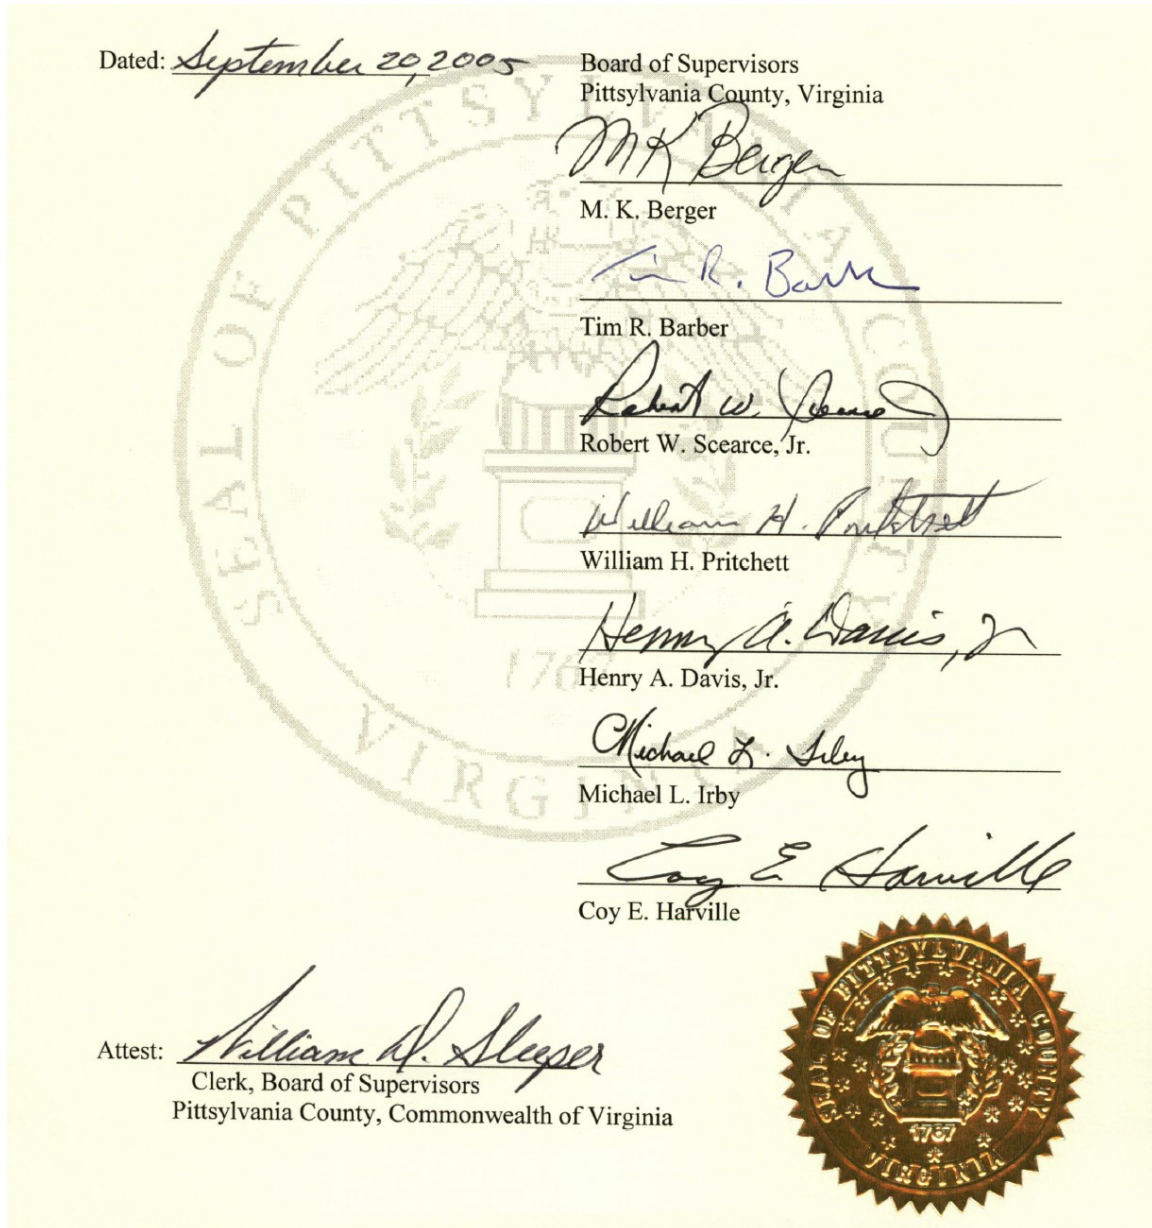 Dated: September 20, 2005
Board of Supervisors
Pittsylvania County, Virginia
MK Berger
M. K. Berger
Tim R. Barber
Tim R. Barber
Robert W. Scearce Jr
Robert W. Scearce, Jr.
William H. Pritchett
William H. Pritchett
Henry A. Davis, Jr
Henry A. Davis, Jr.
Michael L. Irby
Michael L. Irby
Coy E. Harville
Coy E. Harville
Attest: William D. Sleeper
Clerk, Board of Supervisors
Pittsylvania County, Commonwealth of Virginia
SEAL OF PITTSYLVANIA COUNTY
1767
VIRGINIA
SEAL OF PITTSYLVANIA COUNTY
1767
VIRGINIA